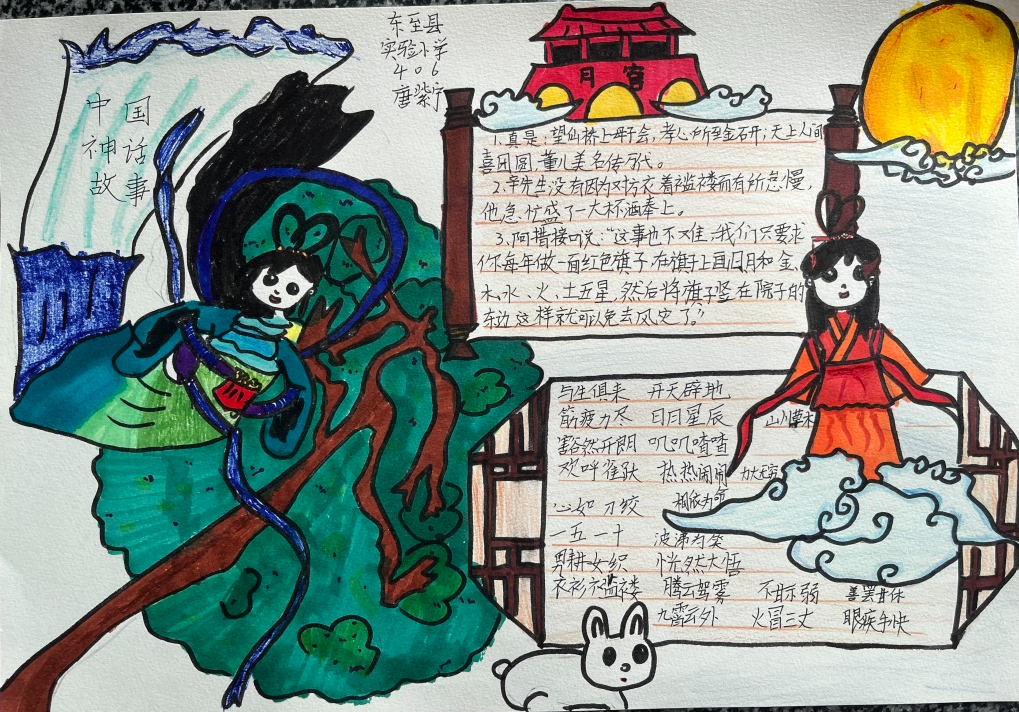 中国
神话
故事
东至县
实验小学
406
唐紫宁
月宫
1.真是:望仙桥上母子会,孝心所至金石开;天上人间
喜团圆,董儿美名传万代。
2.辛先生没有因为对方衣着褴褛而有所怠慢,
他急忙盛了一大杯酒奉上。
3.阿措接口说:“这事也不难,我们只要求
你每年做一面红色旗子,在旗子上画日月和金、
木、水、火、土五星,然后将旗子竖在院子的
东边这样就可以免去风灾了。”
与生俱来 开天辟地
筋疲力尽 日月星辰 山川草木
豁然开朗 叽叽喳喳
欢呼雀跃 热热闹闹 力大无穷
心如刀绞 相依为命
一五一十 破涕为笑
男耕女织 恍然大悟
衣衫褴褛 腾云驾雾 不甘示弱 善罢甘休
九霄云外 火冒三丈 眼疾手快